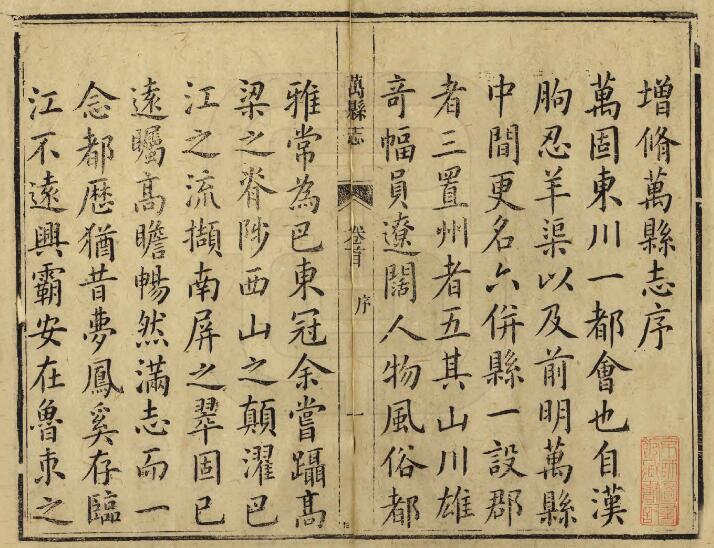 增脩萬縣志序
萬固東川一都會也自漢
朐忍羊渠以及前明萬縣
中間更名六併縣一設郡
者三置州者五其山川雄
竒幅員遼闊人物風俗都
萬縣志 卷首 序 一
雅常為巴東冠余嘗躡高
梁之脊陟西山之顛濯巴
江之流擷南屏之翠固已
遠矚高瞻暢然滿志而一
念都歴猶昔夢鳳奚存臨
江不遠興霸安在魯朿之